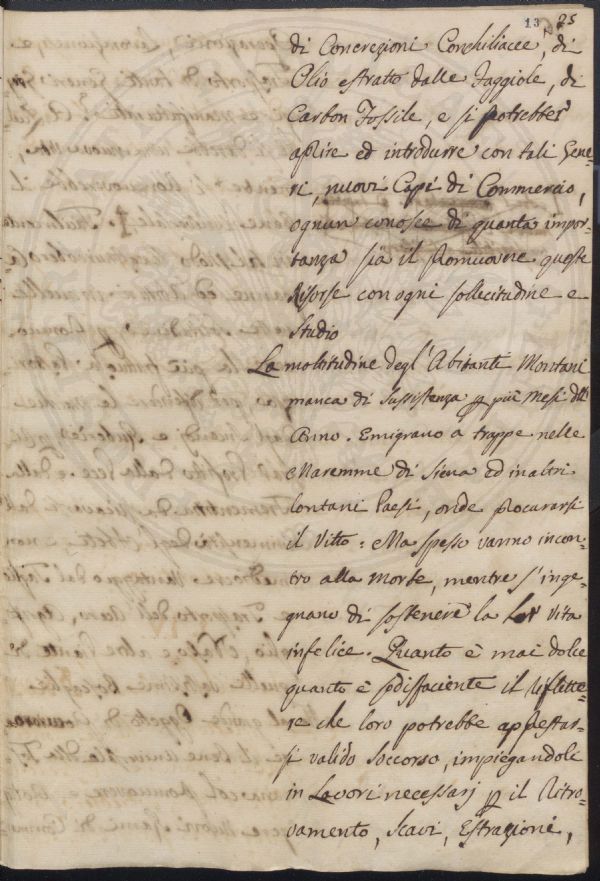 13 25
di Concrezioni Conchiliacee, di
Olio estratto dalle Faggiole, di
Carbon Fossile, e si potrebber
aplire ed introdurre con tali Gene-
ri, nuovi Capi di Commercio,
ognun conosce di quanta impor-
tanza sia il Promuovere queste
Risorse con ogni sollecitudine e
Studio
La moltitudine degl'Abitanti Montani
manca di Sussistenza p più Mesi dell'
Anno. Emigrano a trappe nelle
Maremme di Siena ed in altri
lontani Paesi, onde procurarsi
il Vitto: Ma spesso vanno incon-
tro alla Morte, mentre s'inge-
gnano di sostenere la Lor vita
infelice. Quanto è mai dolce
quanto è sodisfaciente il riflette-
re che loro potrebbe appestar-
si valido soccorso, impiegandoli
in Lavori necessarj p il Ritro-
vamento, Scavi, Estrazione,